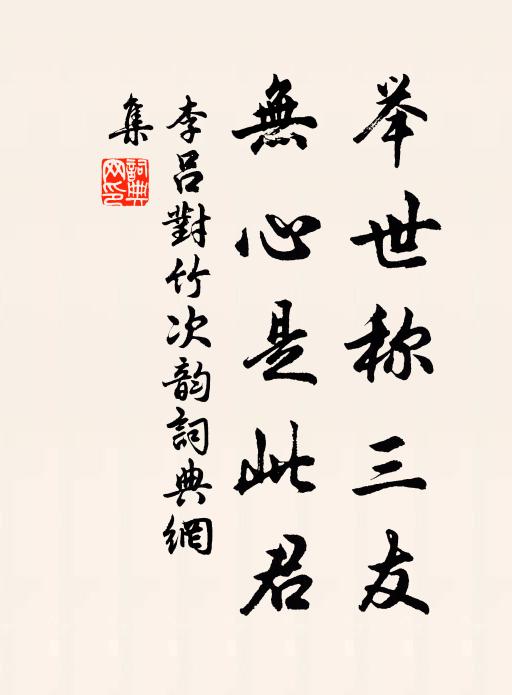 举世称三友
無心是此君
李吕對竹次韵詞典網
集
詞典
网印